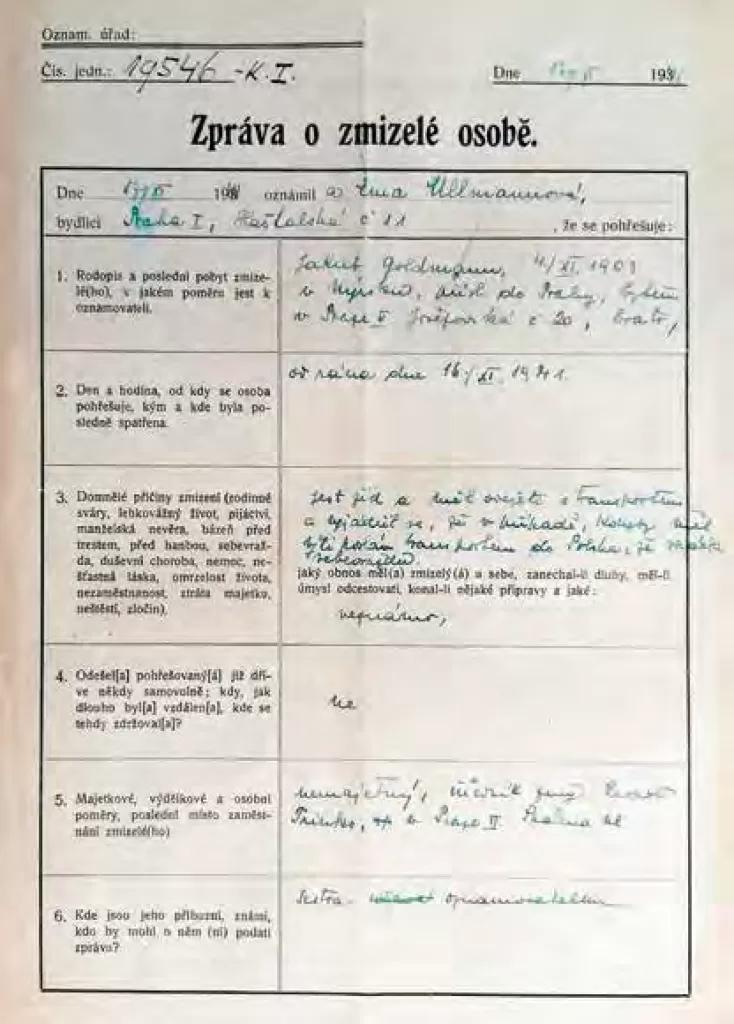 Oznam. úřad:
Čís. jedn.: 19546 -K.I.
Dne 194
Zpráva o zmizelé osobě.
Dne 194 oznámil a) Ullmannová,
bydlící Praha I, Haštalská č 11 , že se pohřešuje:
1. Rodopis a poslední pobyt zmize-
lé(ho), v jakém poměru jest k
oznamovateli.
Jakub Goldmann, 4/XI. 1903
v , do Prahy, bytem
v Praze Josefovská č 20, bratr,
2. Den a hodina, od kdy se osoba
pohřešuje, kým a kde byla po-
sledně spatřena.
od rána dne 16/XI. 1941.
3. Domnělé příčiny zmizení (rodinné
sváry, lehkovážný život, pijáctví,
manželská nevěra, bázeň před
trestem, před hanbou, sebevraž-
da, duševní choroba, nemoc, ne-
šťastná láska, omrzelost života,
nezaměstnanost, ztráta majetku,
neštěstí, zločin).
Jest žid a měl odejeti s transportem
a vyjádřil se, že v případě, kdyby měl
býti poslán transportem do Polska, že spáchá
sebevraždu.
jaký obnos měl(a) zmizelý(á) u sebe, zanechal-li dluhy, měl-li
úmysl odcestovati, konal-li nějaké přípravy a jaké:
neznámo,
4. Odešel[a] pohřešovaný[á] již dří-
ve někdy samovolně; kdy, jak
dlouho byl[a] vzdálen[a], kde se
tehdy zdržoval[a]?
ne
5. Majetkové, výdělkové a osobní
poměry, poslední místo zaměst-
nání zmizelé(ho)
nemajetný, úředník
v Praze II.
6. Kde jsou jeho příbuzní, známí,
kdo by mohl o něm (ní) podati
zprávu?
Sestra - oznamovatelka